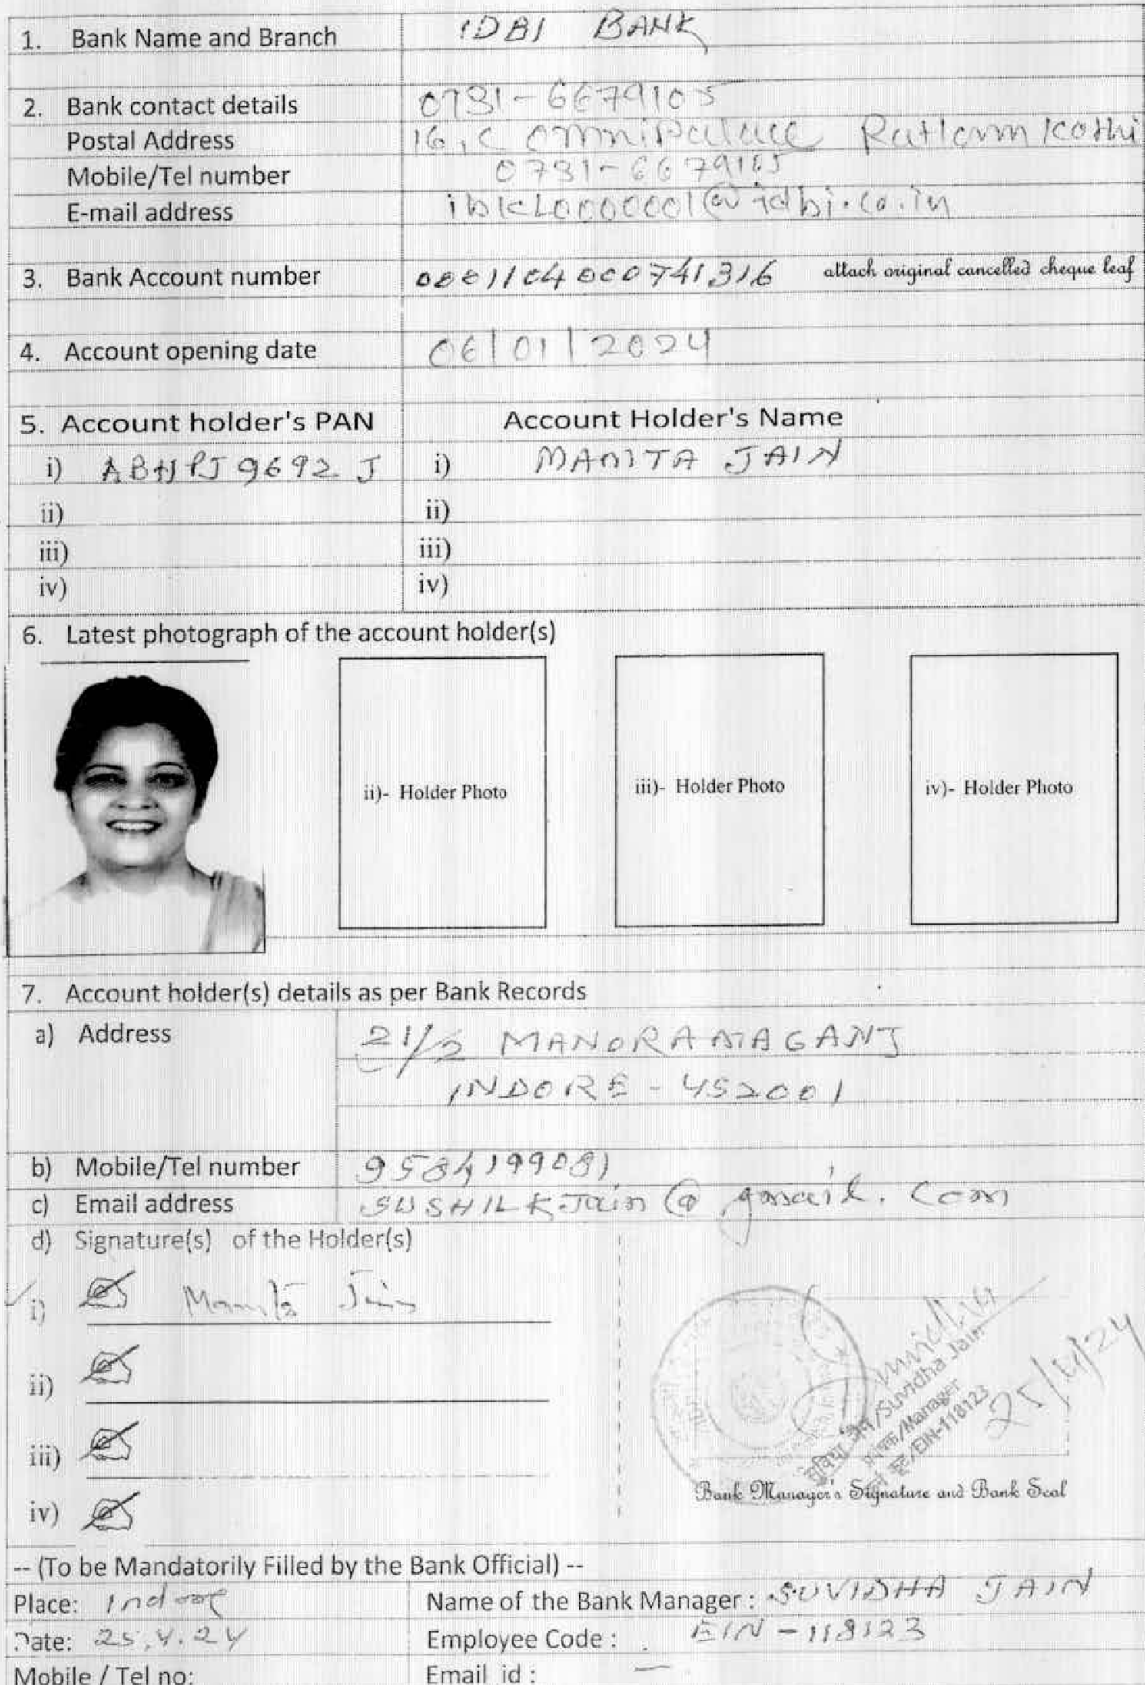 1. Bank Name and Branch IDBI BANK
2. Bank contact details 0731-6679105
Postal Address 16, C Omni Palace Ratlam Kothi
Mobile/Tel number 0731-6679105
E-mail address @idbi.co.in
3. Bank Account number attach original cancelled cheque leaf
4. Account opening date 06/01/2024
5. Account holder's PAN Account Holder's Name
i) ABHPJ9692J i) MAMTA JAIN
ii) ii)
iii) iii)
iv) iv)
6. Latest photograph of the account holder(s)
ii)- Holder Photo iii)- Holder Photo iv)- Holder Photo
7. Account holder(s) details as per Bank Records
a) Address 21/2 MANORAMAGANJ
INDORE - 452001
b) Mobile/Tel number
c) Email address SUSHILK.Jain@gmail.com
d) Signature(s) of the Holder(s)
i) Mamta Jain
ii)
iii)
iv)
सुविधा जैन/Suvidha Jain
प्रबंधक/Manager
EIN-118123
25/4/24
Bank Manager's Signature and Bank Seal
-- (To be Mandatorily Filled by the Bank Official) --
Place: Indore Name of the Bank Manager : SUVIDHA JAIN
Date: 25.4.24 Employee Code : EIN-118123
Mobile / Tel no: Email id : —